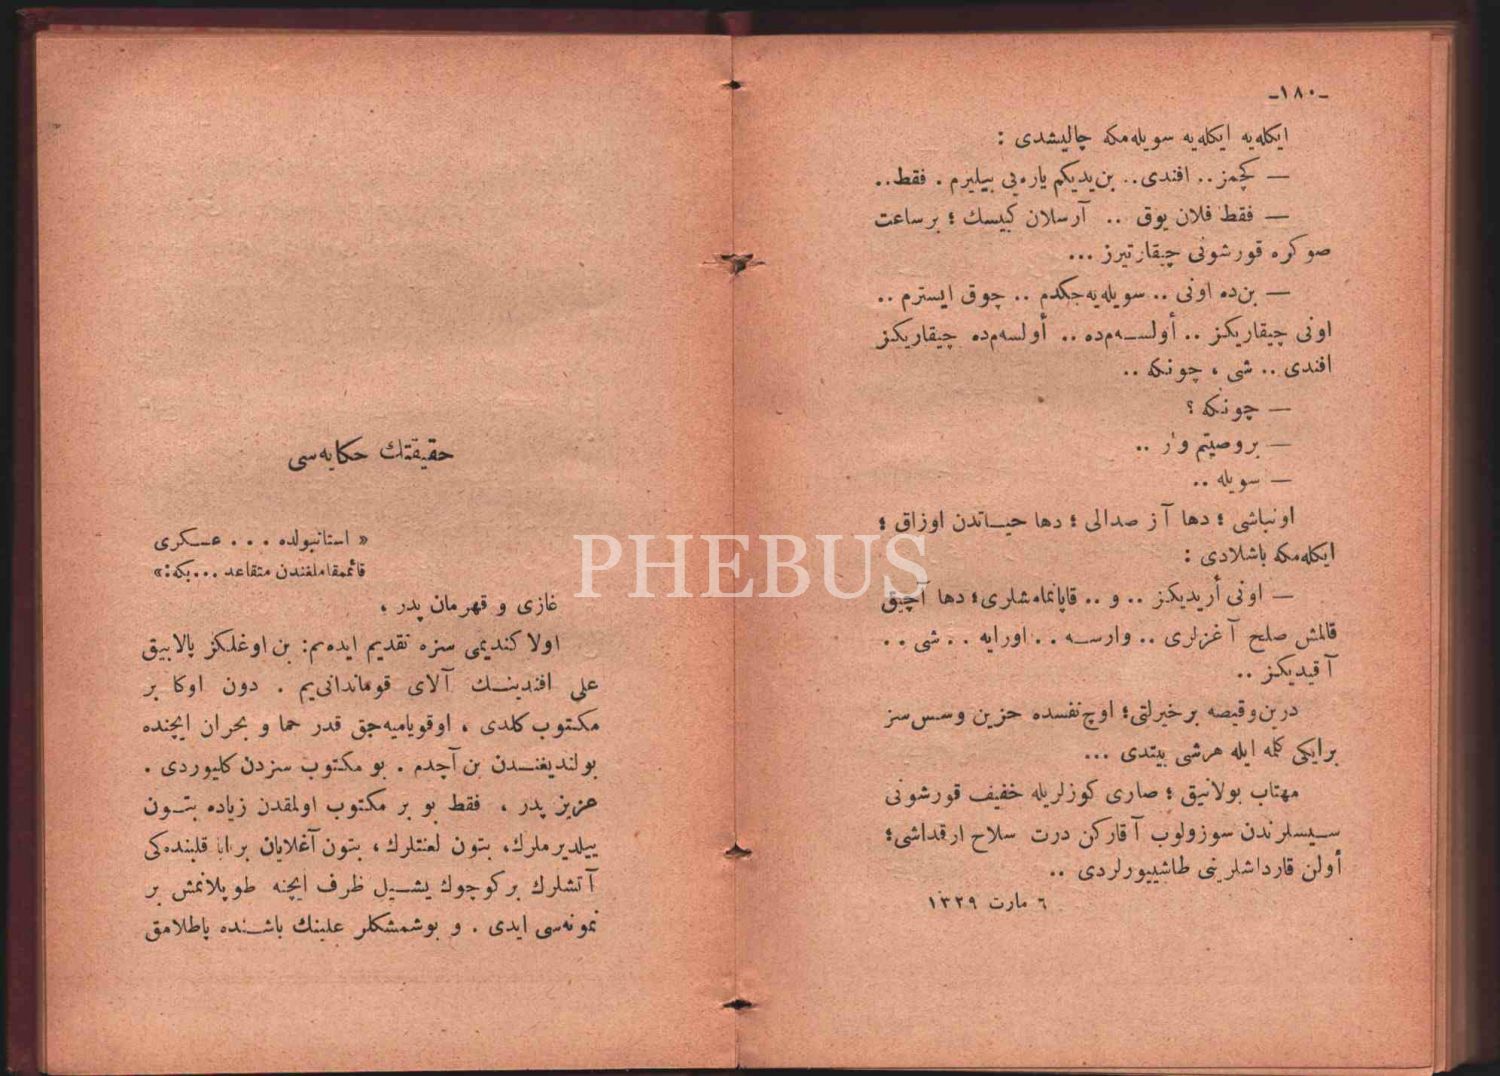 ـ١٨٠ـ
ايكله‌يه ايكله‌يه سويله‌مكه چاليشدى :
— كچمز.. افندى.. بن يديكم ياره‌يى بيليرم . فقط..
— فقط فلان يوق .. آرسلان كبيسك ؛ بر ساعت
صوكره قورشونى چيقارتيرز ...
— بن‌ده اونى .. سويله‌يه‌جكدم .. چوق ايسترم ..
اونى چيقاريكز .. أولســه‌م‌ده .. أولسه‌م‌ده چيقاريكز
افندى .. شى ، چونكه ..
— چونكه ؟
— بر وصيتم وار ..
— سويله ..
اونباشى ؛ دها آز صدالى ؛ دها حيــاتدن اوزاق ؛
ايكله‌مكه باشلادى :
— اونى أريديكز .. و .. قاپانمامشلرى؛ دها آچيق
قالمش صلح آغزلرى .. وارســه .. اورايه .. شى ..
آقيديكز ..
درين و قيصه بر خيرلتى؛ اوچ نفسده حزين و سس‌سز
بر ايكى كلمه ايله هرشى بيتدى ...
مهتاب بولانيق ؛ صارى كوزلريله خفيف قورشونى
سيسلرندن سوزولوب آقاركن درت سلاح ارقداشى؛
أولن قارداشلرينى طاشييورلردى ..
٦ مارت ١٣٢٩
حقيقتك حكايه‌سى
« استانبولده ... عســكرى
قائممقاملغندن متقاعد ... بكه:»
غازى و قهرمان پدر ،
اولا كنديمى سزه تقديم ايده‌يم: بن اوغلكز پالابيق
على افندينــك آلاى قوماندانى‌يم . دون اوكا بر
مكتوب كلدى ، اوقويامیه‌جق قدر حما و بحران ايچنده
بولنديغنــدن بن آچدم . بو مكتوب سزدن كليوردى .
عزيز پدر ، فقط بو بر مكتوب اولمقدن زياده بتــون
ييلديرملرك، بتون لعنتلرك، بتون آغلايان بر بابا قلبنده‌كى
آتشلرك بر كوچوك يشــيل ظرف ايچنه طوپلانمش بر
نمونه‌سى ايدى . و بو شمشكلر علينك باشــنده پاطلامق
PHEBUS